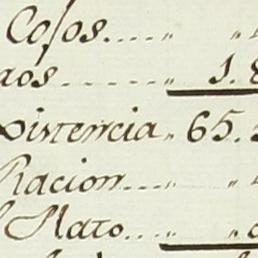 Cosos.... „
aos....... „ 1.8
xistencia „ 65.
Racion... „
Plato... „